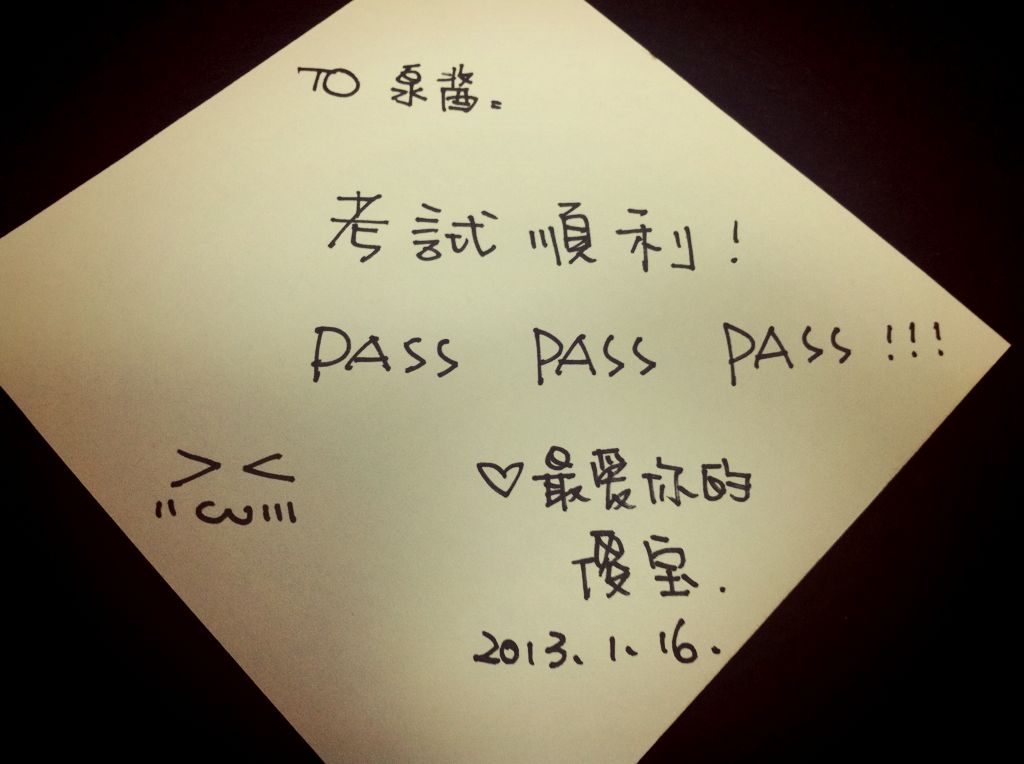 TO 泉醬。
考試順利!
PASS PASS PASS!!!
><
"ω"'
♡最愛你的
傻宝.
2013.1.16.